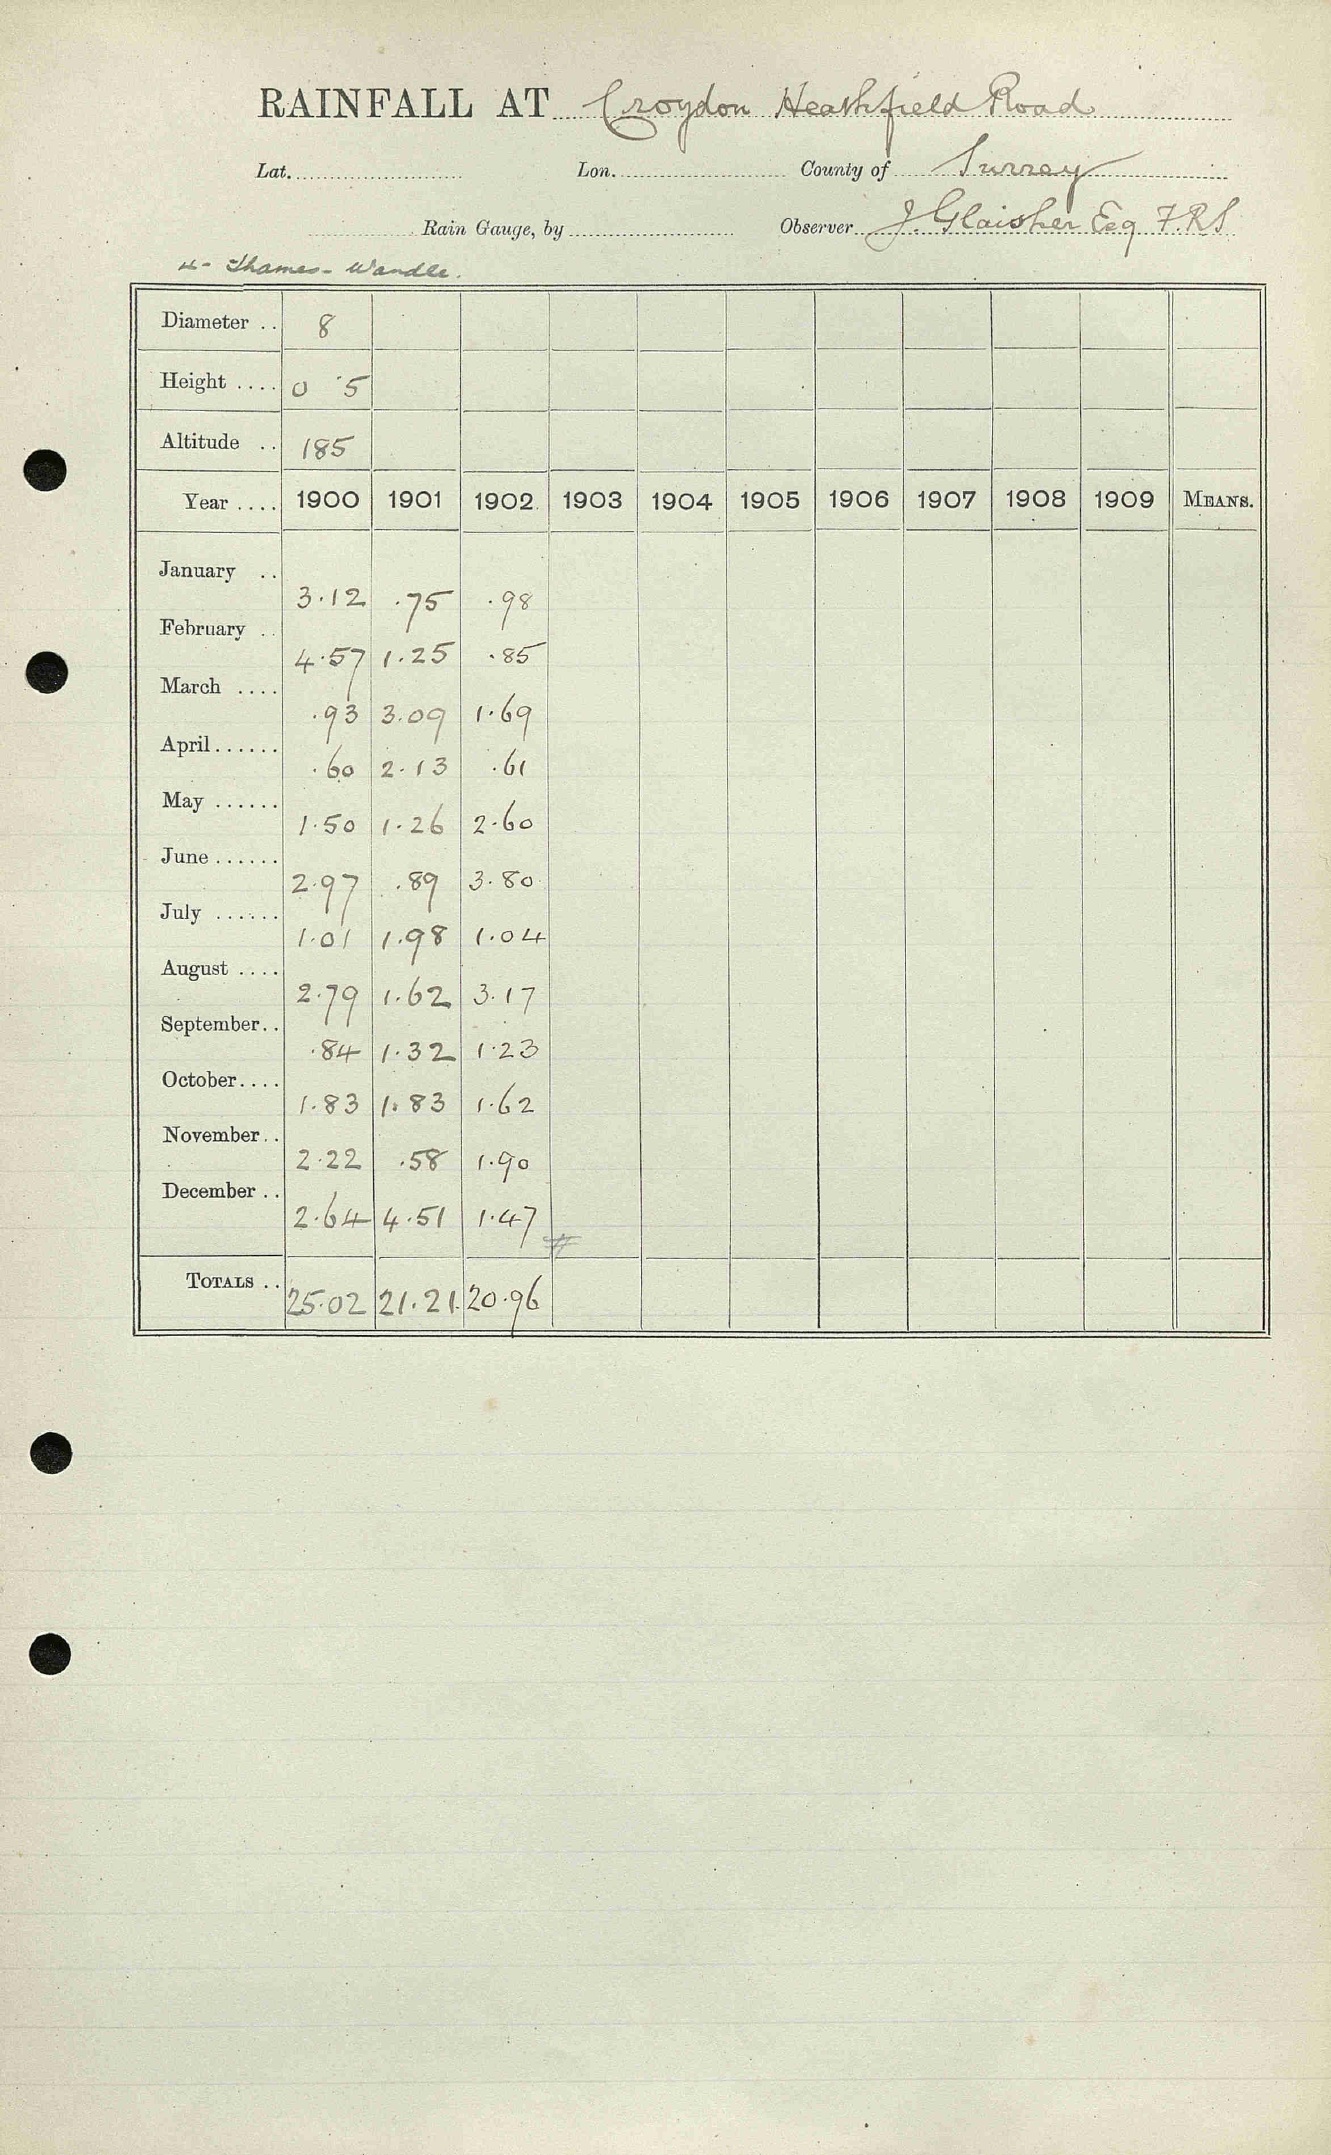 RAINFALL AT Croydon Heathfield Road
Lat. Lon. County of Surrey
Rain Gauge, by Observer J. Glaisher Esq F.R.S
4 - Thames - Wandle.
Diameter .. 8
Height .... 0 5
Altitude .. 185
Year .... 1900 1901 1902 1903 1904 1905 1906 1907 1908 1909 MEANS.
January .. 3.12 .75 .98
February .. 4.57 1.25 .85
March .... .93 3.09 1.69
April ...... .60 2.13 .61
May ...... 1.50 1.26 2.60
June ...... 2.97 .89 3.80
July ...... 1.01 1.98 1.04
August .... 2.79 1.62 3.17
September .. .84 1.32 1.23
October .... 1.83 1.83 1.62
November .. 2.22 .58 1.90
December .. 2.64 4.51 1.47
TOTALS .. 25.02 21.21 20.96